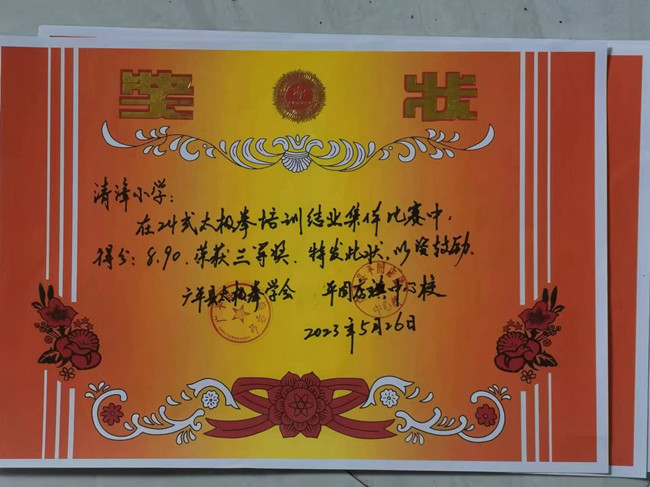 奖 状
清漳小学：
在24式太极拳培训结业集体比赛中，
得分：8.90.荣获三等奖.特发此状，以资鼓励.
广平县太极拳学会 平固店镇中心校
2023年5月26日